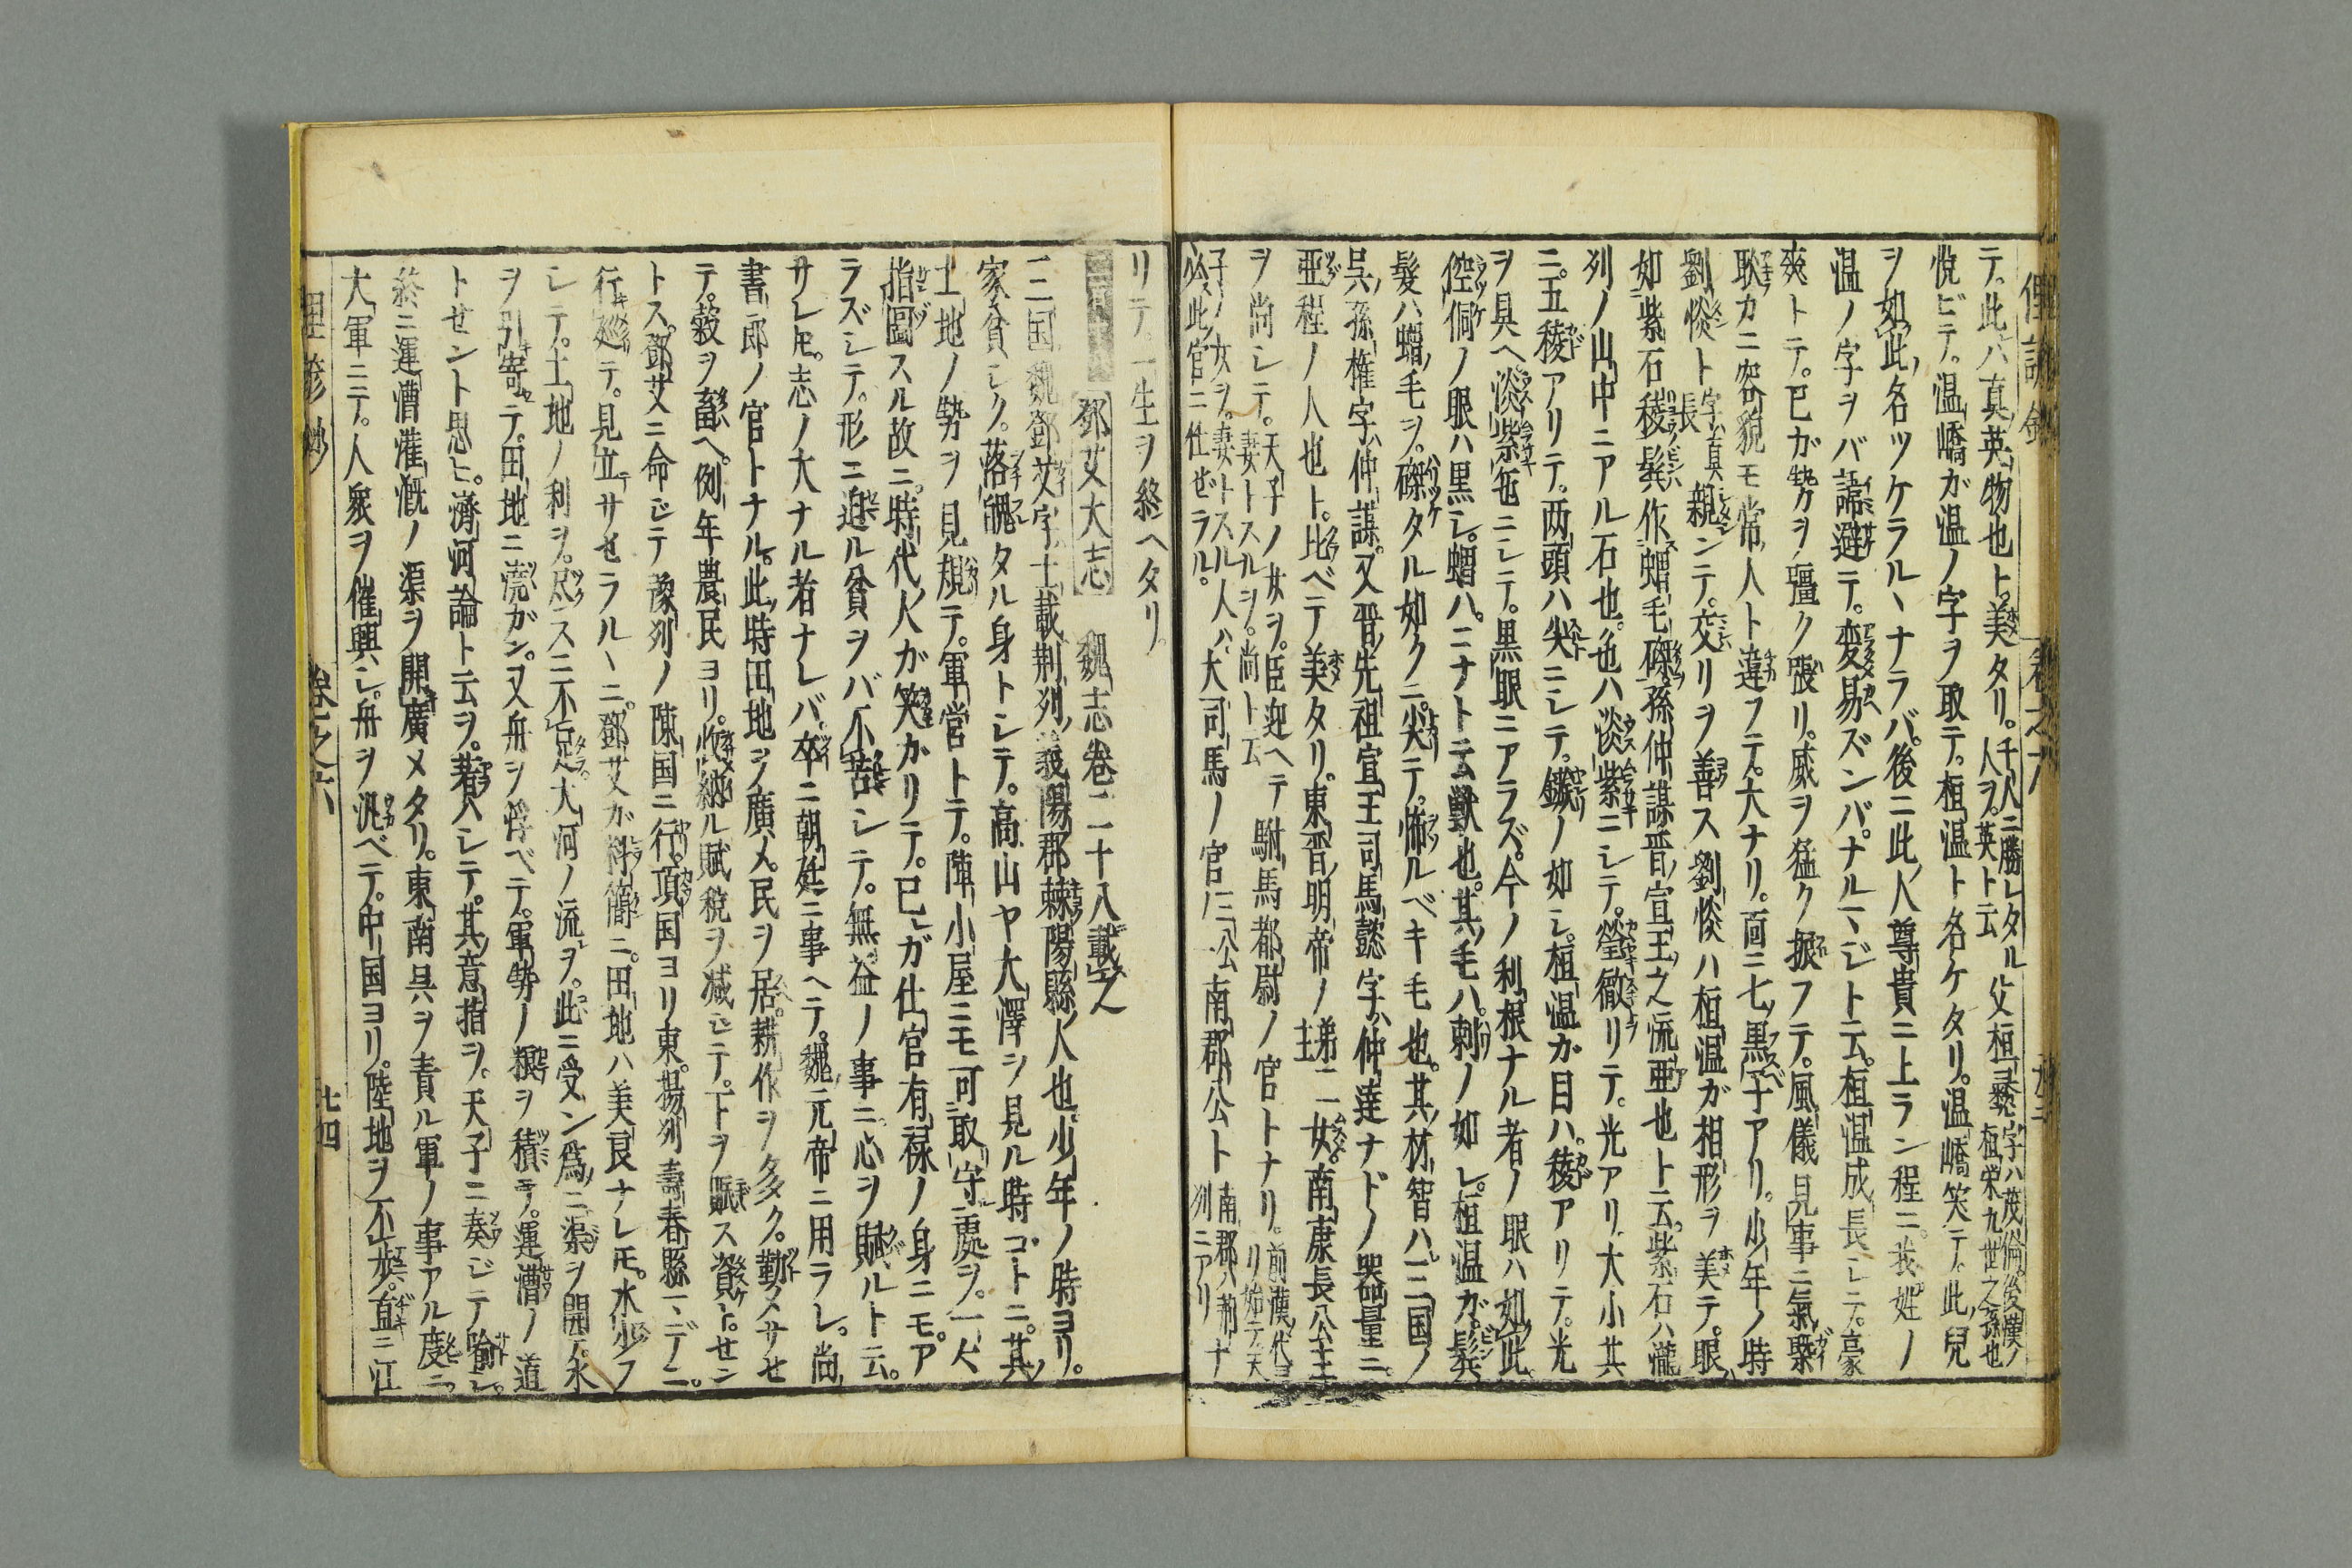 テ。此ハ真英物也ト。美タリ。千人ニ勝レタル人ヲ。英ト云 父桓彝字ハ茂倫。後漢ノ桓栄九世之孫也
悦ビテ。温嶠ガ温ノ字ヲ取テ。桓温ト名ケタリ。温嶠笑テ。此兒
ヲ如此名ツケラルヽナラバ。後ニ此人尊貴ニ上ラン程ニ。我姓ノ
温ノ字ヲバ諱避テ。変易ズンバ。ナルマジト云。桓温成長シテ。豪
爽トテ。己ガ勢ヲ彊ク張リ。威ヲ猛ク振フテ。風儀見事ニ氣槩
耿カニ容貌モ常人ト違フテ。大ナリ。面ニ七黒子アリ。少年ノ時
劉惔ト字真長親ンテ。交リヲ善ス劉惔ハ桓温ガ相形ヲ美テ。眼
如紫石稜鬚作蝟毛磔孫仲謀晋宣王之流亜也ト云。紫石ハ瀧
列ノ山中ニアル石也。色ハ淡紫ニシテ。瑩徹リテ。光アリ大小其
ニ五稜アリテ。両頭ハ尖ニシテ。鏃ノ如シ。桓温ガ目ハ。稜アリテ。光
ヲ具ヘ淡紫色ニシテ。黒眼ニアラズ。今ノ利根ナル者ノ眼ハ如此
倥侗ノ眼ハ黒シ。蝟ハ。ニナト云獣也。其毛ハ。刺ノ如シ。桓温ガ。鬢
髪ハ蝟毛ヲ。磔タル如クニ尖テ。怖ルベキ毛也。其材智ハ。三国ノ
呉孫権字仲謀。又晋先祖宣王司馬懿字仲達ナドノ器量ニ。
亜程ノ人也ト。比ベテ美タリ。東晋明帝ノ第二女。南康長公主
ヲ尚シテ。天子ノ女ヲ。臣迎ヘテ妻トスルヲ。尚ト云 駙馬都尉ノ官トナリ。前漢代ヨリ始テ天
子ノ女ヲ。妻トスル人ハ。必此官ニ仕ゼラル。大司馬ノ官三公南郡公ト南郡ハ荊列ニアリナ
リテ。一生ヲ終ヘタリ。
鄧艾大志 魏志巻二十八載之
三国魏鄧艾字士載荊列義陽郡棘陽縣ノ人也。少年ノ時ヨリ。
家貧シク。落魄タル身トシテ。高山ヤ大澤ヲ見ル時ゴトニ。其
土地ノ勢ヲ見規テ。軍営トテ。陣小屋ニモ可取守處ヲ。一々
指圖スル故ニ。時代人ガ笑カリテ。己レガ仕官有禄ノ身ニモ。ア
ラズシテ。形ニ迫ル貧ヲバ不苦シテ。無益ノ事ニ心ヲ賦ルト云。
サレ𪜈。志ノ大ナル者ナレバ。卒ニ朝廷ニ事ヘテ。魏元帝ニ用ラレ。尚
書郎ノ官トナル。此時田地ヲ廣メ。民ヲ居。耕作ヲ多ク。勤メサセ
テ。穀ヲ畜ヘ。例年農民ヨリ。收納ル賦税ヲ减ジテ。下ヲ賑ス資トセン
トス。鄧艾ニ命ジテ豫列ノ陳国ニ行。項国ヨリ東。揚列壽春縣マデニ。
行廵テ。見立サセラルヽニ。鄧艾ガ料簡ニ。田地ハ美良ナレ𪜈。水少フ
シテ。土地ノ利ヲ。尽スニ不足大河ノ流ヲ。此ニ受ン為ニ渠ヲ開テ。水
ヲ引寄テ。田地ニ澆ガン。又舟ヲ浮ベテ。軍勢ノ糧ヲ積テ。運漕ノ道
トセント思ヒ。濟河論ト云ヲ。著ハシテ。其意指ヲ。天子ニ奏ジテ喩シ。
終ニ運漕灌漑ノ渠ヲ開廣メタリ。東南呉ヲ責ル軍ノ事アル度ニ。
大軍ニテ。人衆ヲ催興シ。舟ヲ汎ベテ。中国ヨリ。陸地ヲ不歩。直ニ江